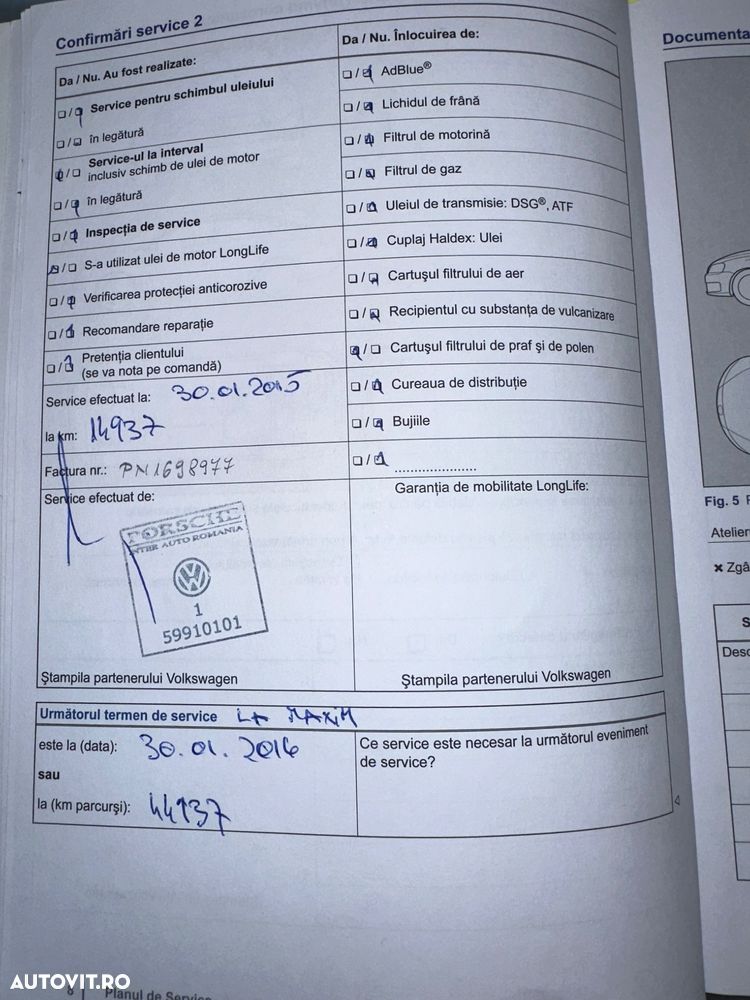 Confirmări service 2
Da / Nu. Au fost realizate:
/ Service pentru schimbul uleiului
/ în legătură
/ Service-ul la interval
inclusiv schimb de ulei de motor
/ în legătură
/ Inspecția de service
/ S-a utilizat ulei de motor LongLife
/ Verificarea protecției anticorozive
/ Recomandare reparație
/ Pretenția clientului
(se va nota pe comandă)
Service efectuat la: 30.01.2015
la km: 14937
Factura nr.: PN1698977
Service efectuat de:
PORSCHE
INTER AUTO ROMANIA
1
59910101
Ștampila partenerului Volkswagen
Da / Nu. Înlocuirea de:
/ AdBlue®
/ Lichidul de frână
/ Filtrul de motorină
/ Filtrul de gaz
/ Uleiul de transmisie: DSG®, ATF
/ Cuplaj Haldex: Ulei
/ Cartușul filtrului de aer
/ Recipientul cu substanța de vulcanizare
/ Cartușul filtrului de praf și de polen
/ Cureaua de distribuție
/ Bujiile
/ ......................
Garanția de mobilitate LongLife:
Ștampila partenerului Volkswagen
Următorul termen de service LA MAXIM
este la (data): 30.01.2016
sau
la (km parcurși): 44937
Ce service este necesar la următorul eveniment
de service?
8 Planul de Service
Documenta
Fig. 5
Atelier
Zgâ
S
Desc
AUTOVIT.RO